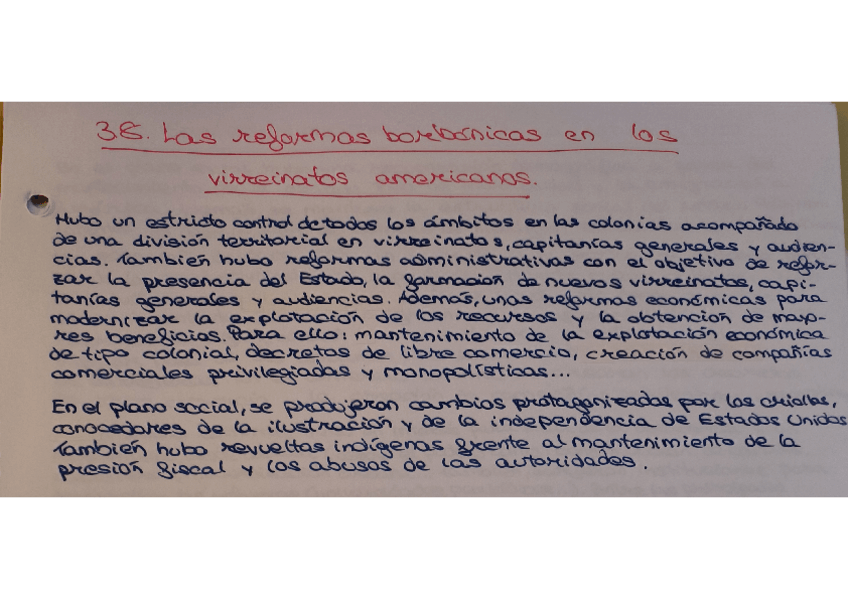 3.8. Las reformas borbónicas en los
virreinatos americanos.
Hubo un estricto control de todos los ámbitos en las colonias acompañado
de una división territorial en virreinatos, capitanías generales y audien-
cias. También hubo reformas administrativas con el objetivo de refor-
zar la presencia del Estado, la formación de nuevos virreinatos, capi-
tanías generales y audiencias. Además, unas reformas económicas para
modernizar la explotación de los recursos y la obtención de mayo-
res beneficios. Para ello: mantenimiento de la explotación económica
de tipo colonial, decretos de libre comercio, creación de compañías
comerciales privilegiadas y monopolísticas...
En el plano social, se produjeron cambios protagonizados por los criollos,
conocedores de la ilustración y de la independencia de Estados Unidos
También hubo revueltas indígenas frente al mantenimiento de la
presión fiscal y los abusos de las autoridades.